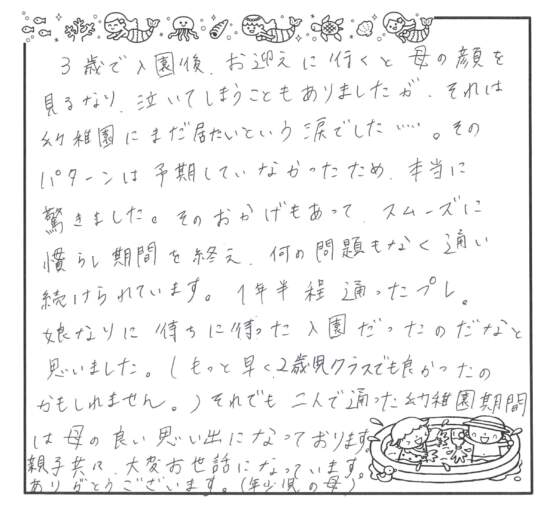 3歳で入園後、お迎えに行くと母の顔を
見るなり、泣いてしまうこともありましたが、それは
幼稚園にまだ居たいという涙でした……。その
パターンは予期していなかったため、本当に
驚きました。そのおかげもあって、スムーズに
慣らし期間を終え、何の問題もなく通い
続けられています。1年半程通ったプレ。
娘なりに待ちに待った入園だったのだなと
思いました。(もっと早く、2歳児クラスでも良かったの
かもしれません。)それでも二人で通った幼稚園期間
は母の良い思い出になっております。
親子共に、大変お世話になっています。
ありがとうございます。(年少児の母)